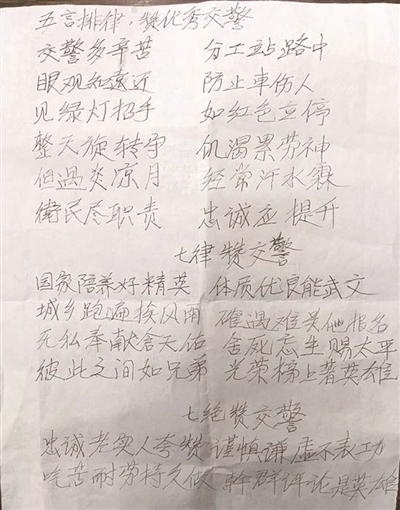 五言排律，赞优秀交警
交警多辛苦 分工站路中
眼观知远近 防止車伤人
见绿灯招手 如红色立停
整天旋转孕 饥渴累劳神
但遇炎凉月 经常汗水
衛民尽职责 忠诚应提升
七律赞交警
国家陪养好精英 体质优良能武文
城乡跑遍挨风雨 碰遇难关他报名
无私奉献含天佑 舍死忘生赐太平
彼此之间如兄弟 光荣榜上著英雄
七绝赞交警
忠诚老实人夸赞 谨慎谦虚不表功
吃苦耐劳持久做 幹群评论是英雄